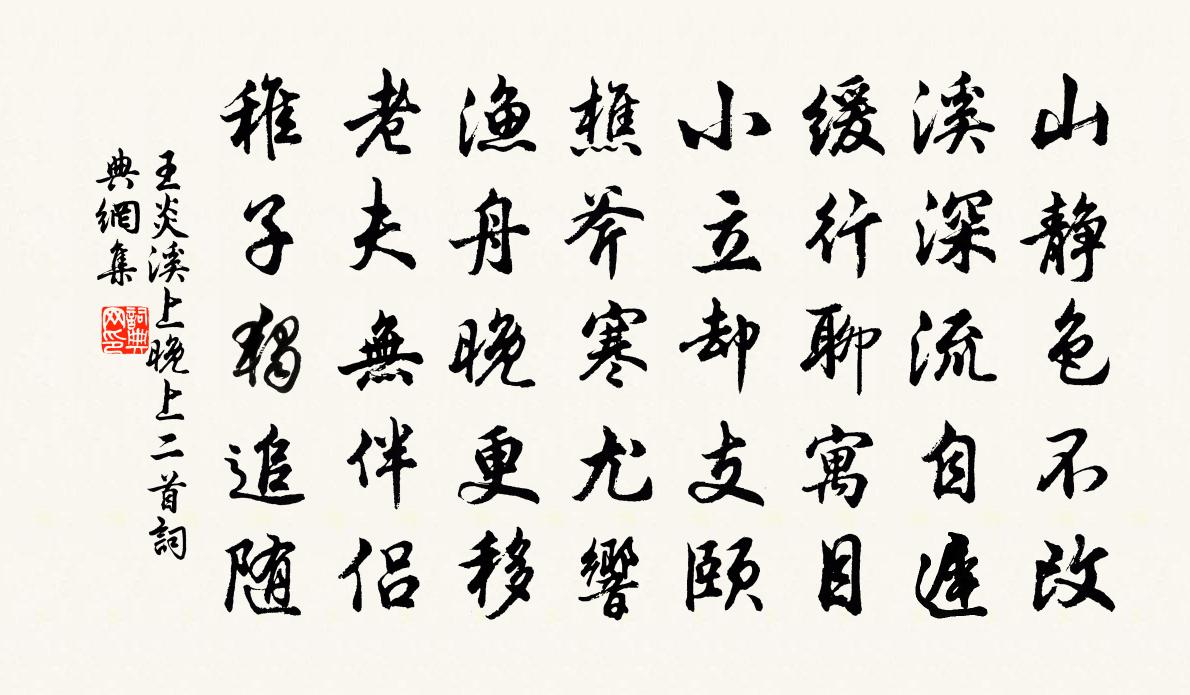 山静色不改
溪深流自遲
缓行聊寓目
小立却支颐
樵斧寒尤響
渔舟晚更移
老夫無伴侣
稚子獨追随
王炎溪上晚上二首詞
典網集
詞典
网印